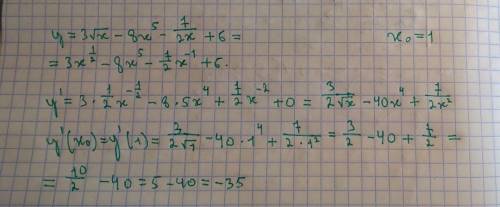 y = 3√x - 8x⁵ - 7/2x + 6 =    x₀ = 1
= 3x^(1/2) - 8x⁵ - 7/2 x⁻¹ + 6.
y' = 3 · 1/2 x^(-1/2) - 8 · 5x⁴ + 7/2 x⁻² + 0 = 3/2√x - 40x⁴ + 7/2x²
y'(x₀) = y'(1) = 3/2√1 - 40 · 1⁴ + 7/2 · 1² = 3/2 - 40 + 7/2 =
= 10/2 - 40 = 5 - 40 = -35